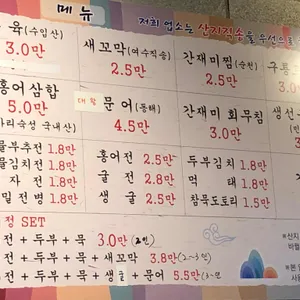 메뉴
저희 업소는 산지직송을 우선으로
육(수입산) 3.0만
새꼬막(여수직송) 2.5만
간재미찜(순천) 2.5만
홍어삼합 5.0만
숙성 국내산)
대왕 문어(동해) 4.5만
간재미 회무침 3.0만
물부추전 1.8만
물김치전 1.8만
자전 1.8만
밀전병 1.8만
홍어전 2.5만
굴전 2.8만
생굴 2.5만
두부김치 1.8만
먹태 1.8만
참목도토리 1.5만
정 SET
전 + 두부 + 묵 3.0만(2인)
전 + 두부 + 묵 + 새꼬막 3.8만(2~3인)
전 + 두부 + 묵 + 생굴 + 문어 5.5만
※산지